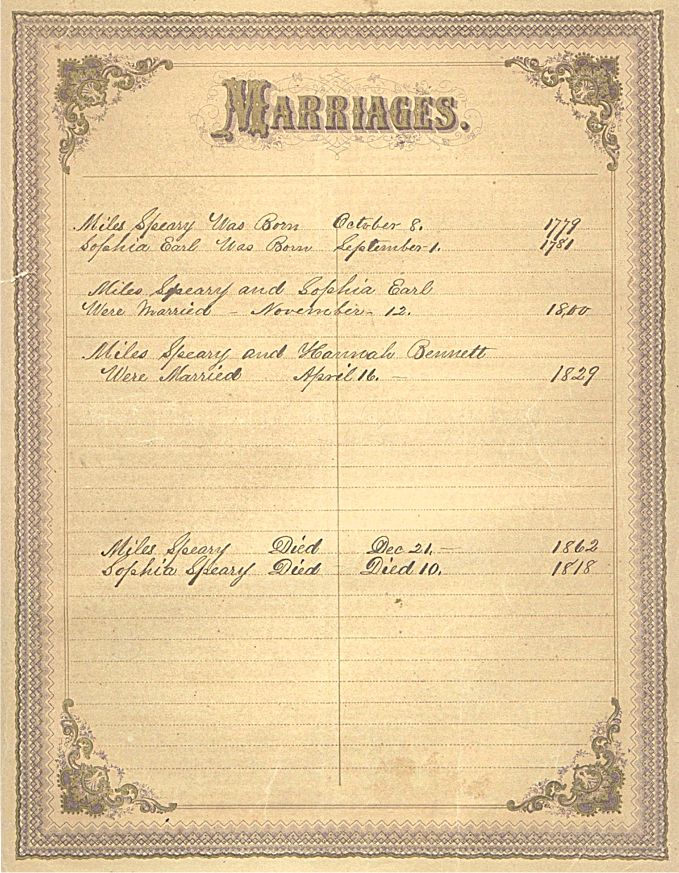 MARRIAGES.
Miles Speary Was Born October 8. 1779
Sophia Earl Was Born September 1. 1781
Miles Speary and Sophia Earl
Were Married - November - 12. 1800
Miles Speary and Hannah Bennett
Were Married April 16. - 1829
Miles Speary Died Dec 21. - 1862
Sophia Speary Died Died 10. 1818